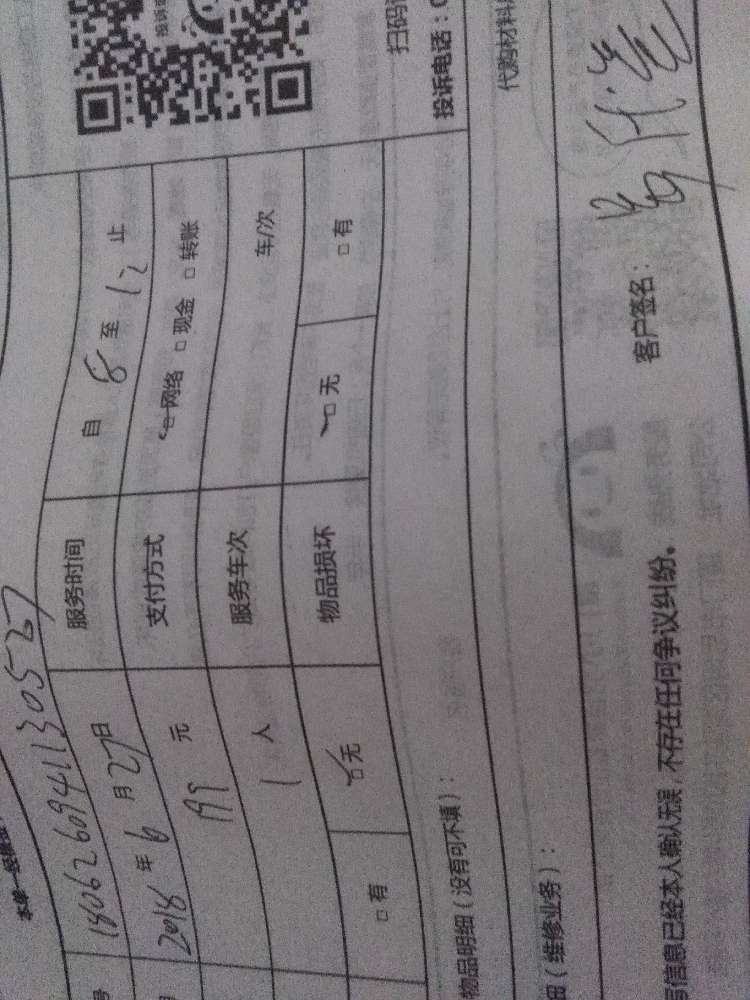 本单一经
号 1806260941130527
2018 年 6 月 27 日 服务时间 自 8 至 12 止
元 支付方式 网络 现金 转账
1 人 服务车次 车/次
有 无 物品损坏 无 有
扫码
投诉电话：0
物品明细（没有可不填）：
代购材料
细（维修业务）：
写信息已经本人确认无误，不存在任何争议纠纷。 客户签名：